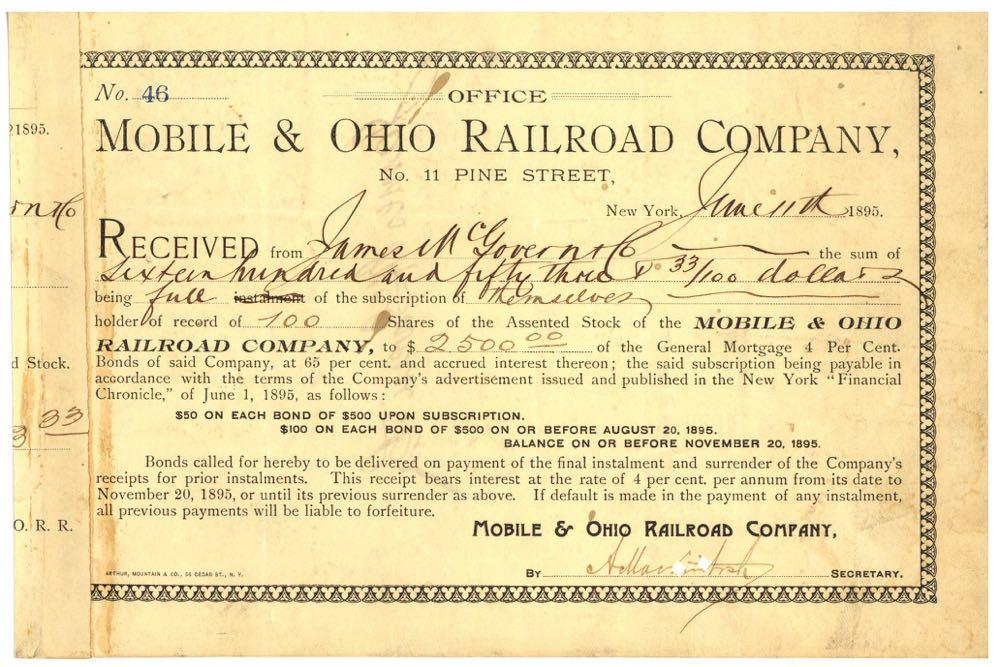 1895.
d Stock.
33
O. R. R.
No. 46
OFFICE
MOBILE & OHIO RAILROAD COMPANY,
No. 11 PINE STREET,
New York, June 11th 1895.
RECEIVED from James McGovern & Co the sum of
Sixteen hundred and fifty three & 33/100 dollars
being full instalment of the subscription of themselves
holder of record of 100 Shares of the Assented Stock of the MOBILE & OHIO
RAILROAD COMPANY, to $ 2500 00 of the General Mortgage 4 Per Cent.
Bonds of said Company, at 65 per cent. and accrued interest thereon; the said subscription being payable in
accordance with the terms of the Company's advertisement issued and published in the New York "Financial
Chronicle," of June 1, 1895, as follows:
$50 ON EACH BOND OF $500 UPON SUBSCRIPTION.
$100 ON EACH BOND OF $500 ON OR BEFORE AUGUST 20, 1895.
BALANCE ON OR BEFORE NOVEMBER 20, 1895.
Bonds called for hereby to be delivered on payment of the final instalment and surrender of the Company's
receipts for prior instalments. This receipt bears interest at the rate of 4 per cent. per annum from its date to
November 20, 1895, or until its previous surrender as above. If default is made in the payment of any instalment,
all previous payments will be liable to forfeiture.
MOBILE & OHIO RAILROAD COMPANY,
ARTHUR, MOUNTAIN & CO., 56 CEDAR ST., N. Y.
BY SECRETARY.